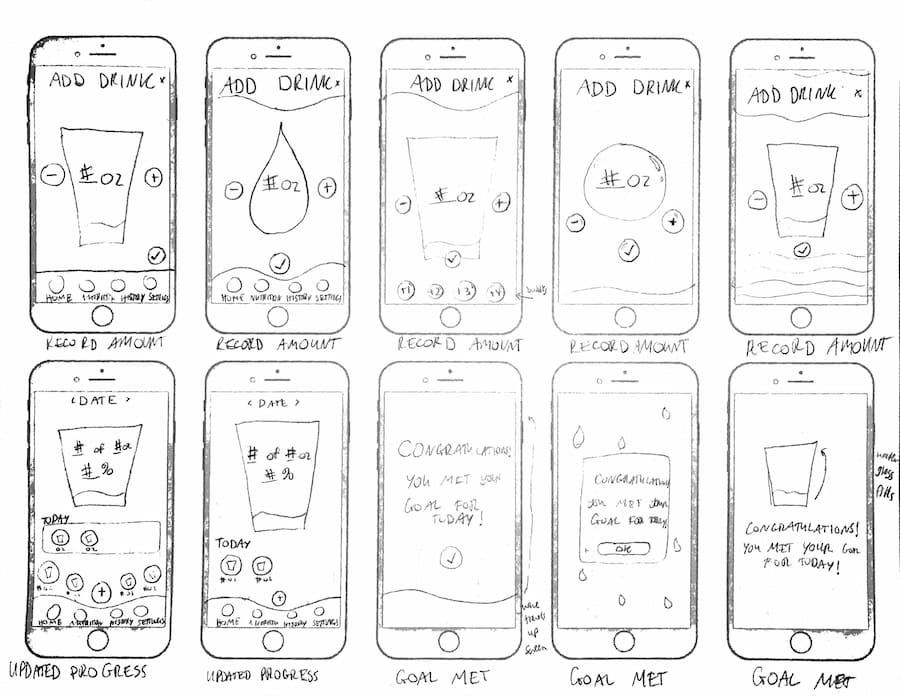 ADD DRINK x
# OZ
− +
✓
HOME NUTRITION HISTORY SETTINGS
RECORD AMOUNT
ADD DRINK x
# OZ
− +
✓
HOME NUTRITION HISTORY SETTINGS
RECORD AMOUNT
ADD DRINK x
# OZ
− +
✓
+1 +2 +3 +4
RECORD AMOUNT
ADD DRINK x
# OZ
− +
✓
RECORD AMOUNT
ADD DRINK x
# OZ
− +
✓
RECORD AMOUNT
< DATE >
# of #oz
# %
TODAY
OZ OZ
#oz #oz #oz
+
HOME NUTRITION HISTORY SETTINGS
UPDATED PROGRESS
< DATE >
# of #oz
# %
TODAY
#oz #oz
+
HOME NUTRITION HISTORY SETTINGS
UPDATED PROGRESS
CONGRATULATIONS!
YOU MET YOUR
GOAL FOR
TODAY!
✓
wave
travels
up
screen
GOAL MET
CONGRATULATIONS
YOU MET YOUR
GOAL FOR TODAY
GOAL MET
water
glass
fills
CONGRATULATIONS!
YOU MET YOUR GOAL
FOR TODAY!
GOAL MET